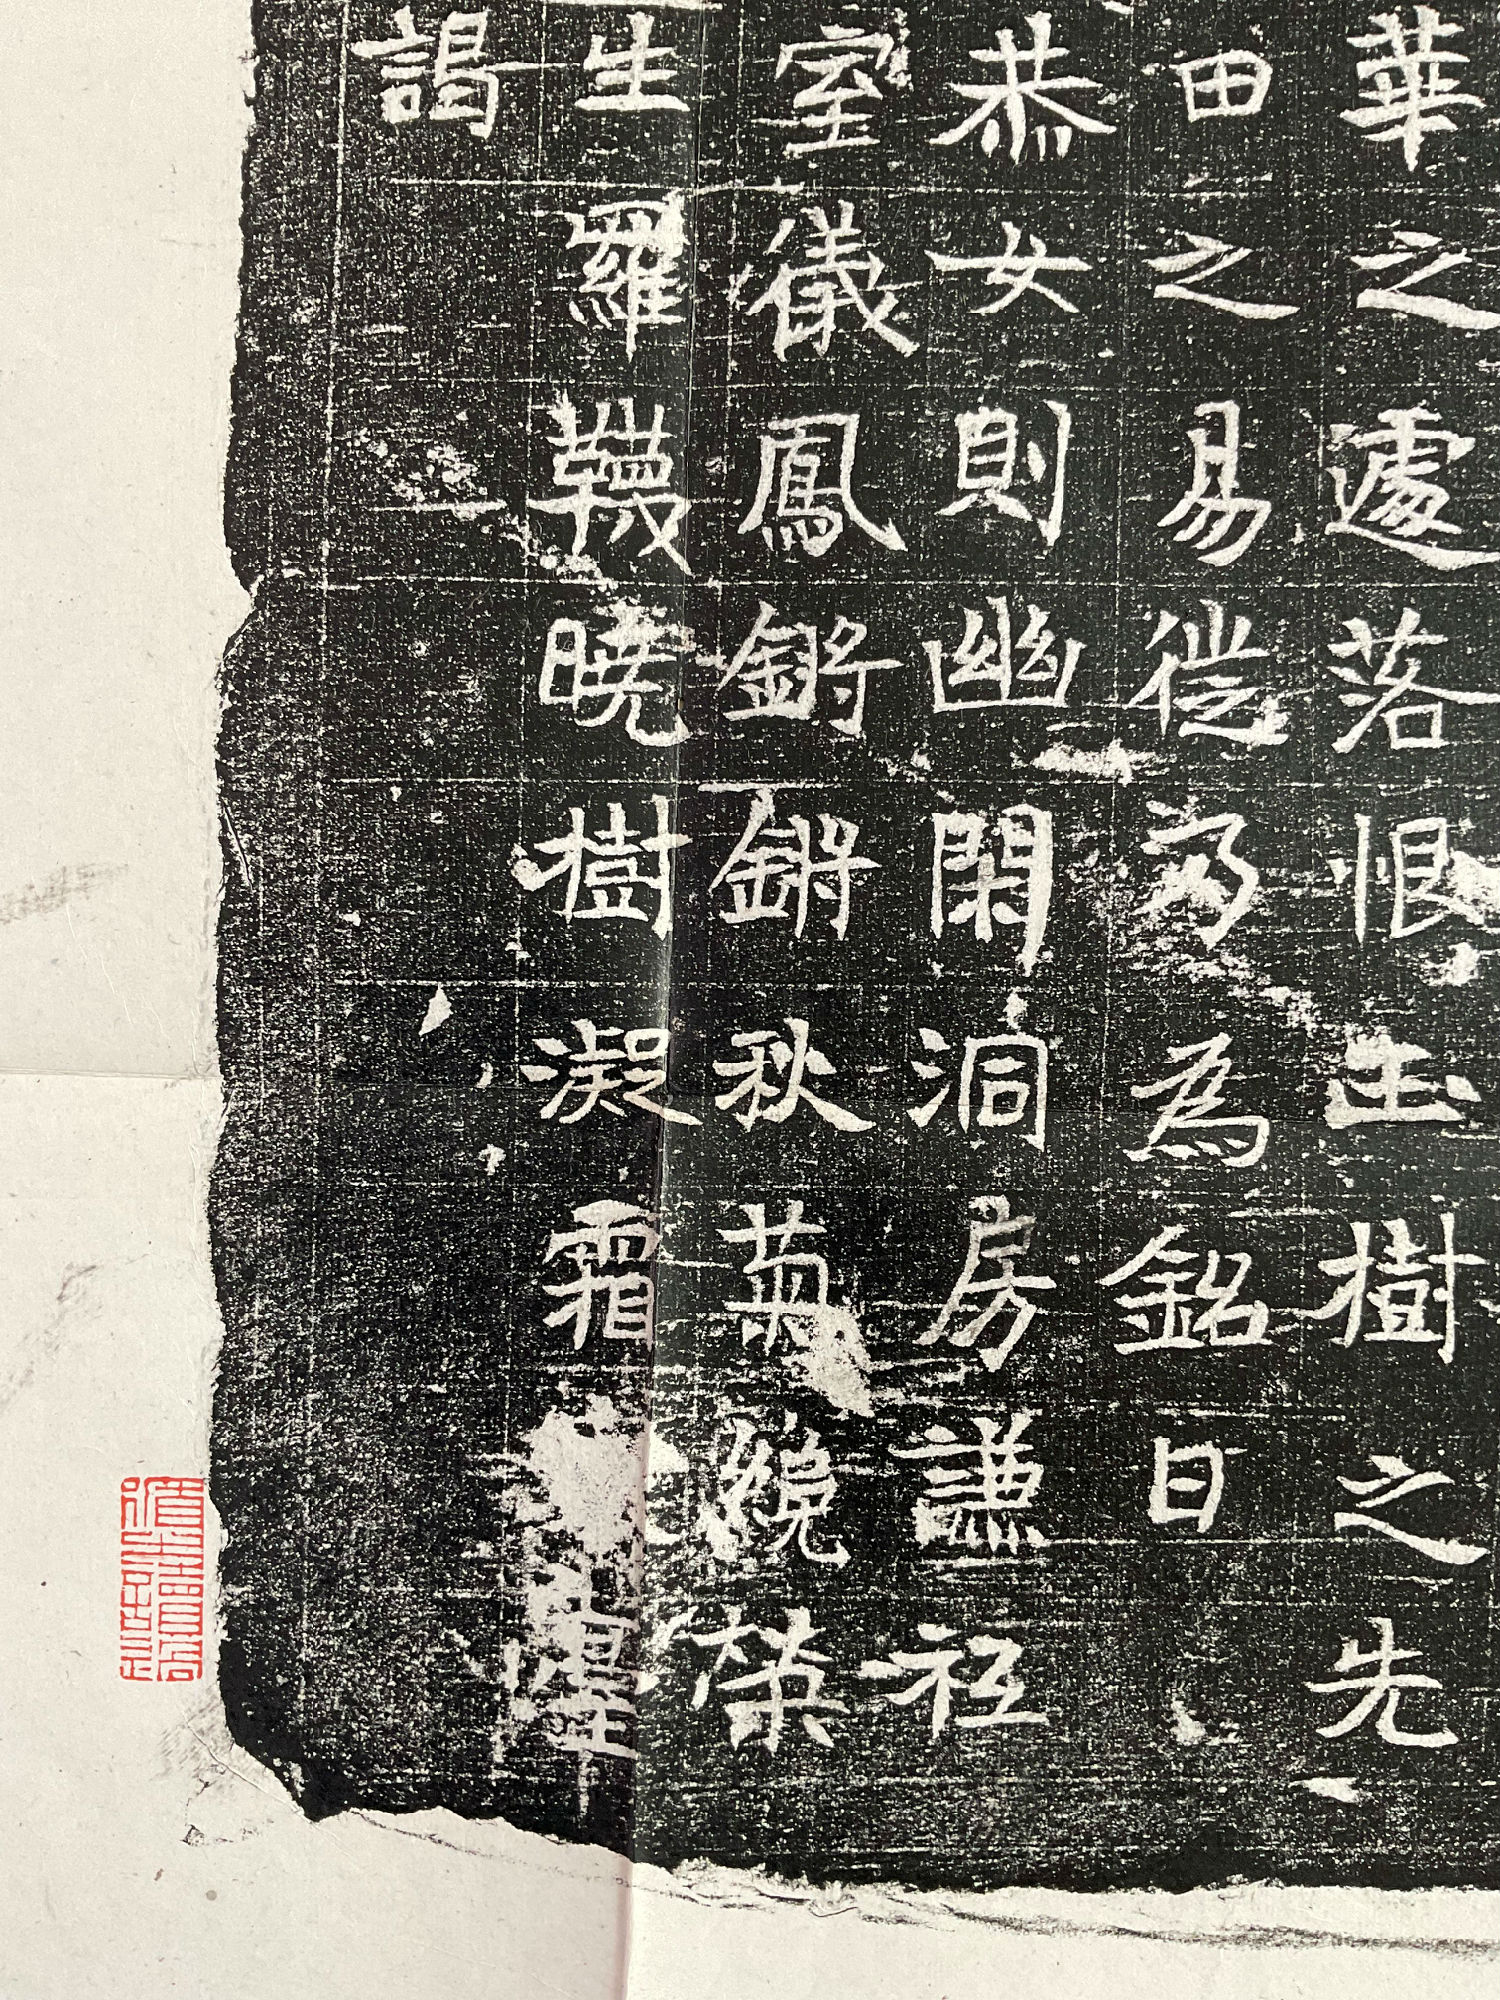 華之遽落恨玉樹之先
田之易徙乃為銘曰
恭女則幽閑洞房謙祗
室儀鳳鏘鏘秋菊繞榮
生羅韈曉樹凝霜
謁